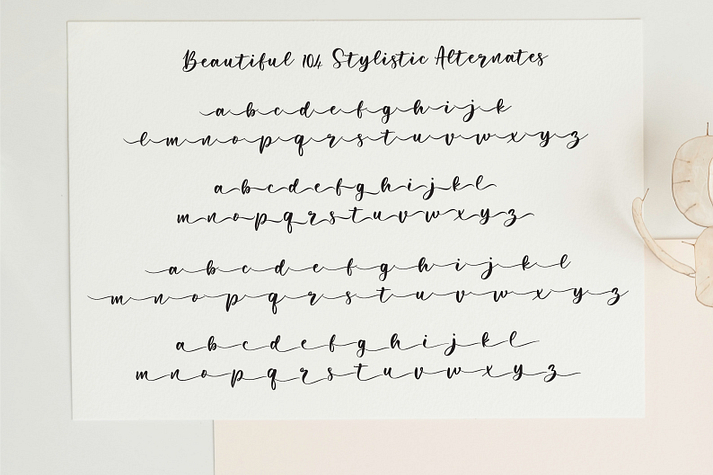 Beautiful 104 Stylistic Alternates
a b c d e f g h i j k
l m n o p q r s t u v w x y z
a b c d e f g h i j k l
m n o p q r s t u v w x y z
a b c d e f g h i j k l
m n o p q r s t u v w x y z
a b c d e f g h i j k l
m n o p q r s t u v w x y z